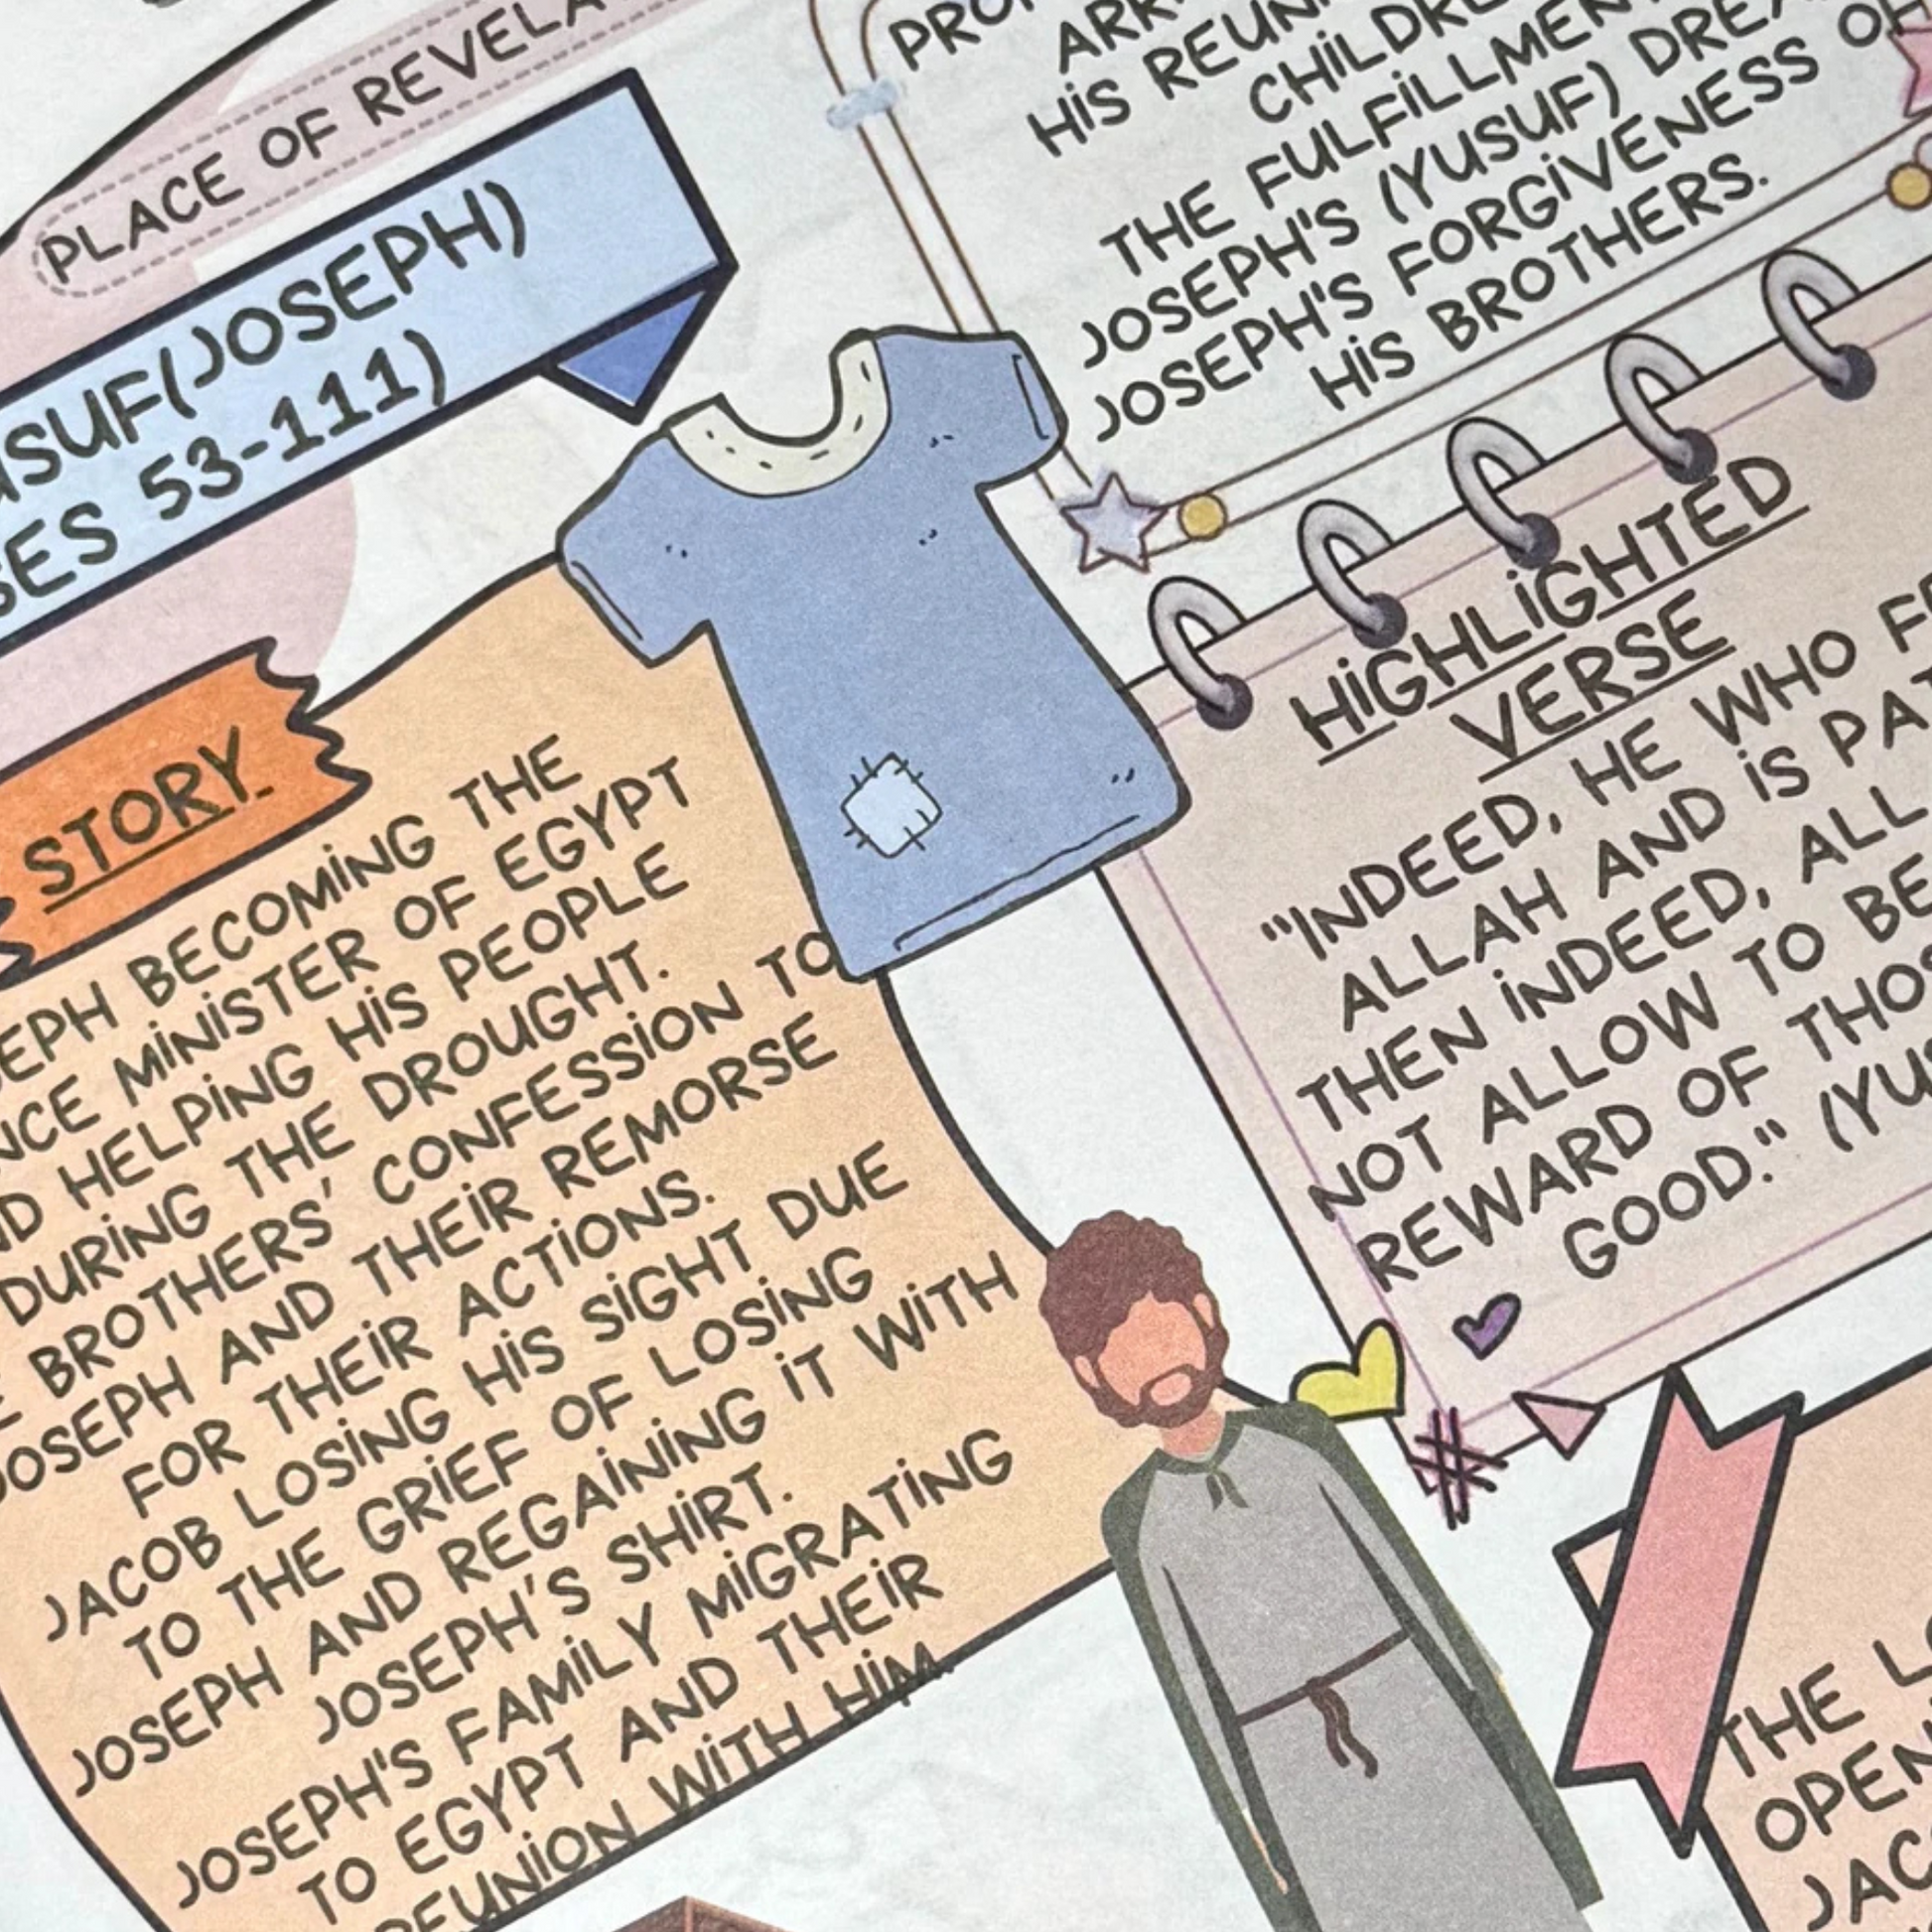 PLACE OF REVELA
(JOSEPH)
53-111)
STORY
BECOMING THE
MINISTER OF EGYPT
HELPING HIS PEOPLE
DURING THE DROUGHT.
BROTHERS' CONFESSION TO
JOSEPH AND THEIR REMORSE
FOR THEIR ACTIONS.
JACOB LOSING HIS SIGHT DUE
TO THE GRIEF OF LOSING
JOSEPH AND REGAINING IT WITH
JOSEPH'S SHIRT.
JOSEPH'S FAMILY MIGRATING
TO EGYPT AND THEIR
REUNION WITH HIM.
HIS
THE FULFILLMENT
JOSEPH'S (YUSUF)
JOSEPH'S FORGIVENESS OF
HIS BROTHERS.
HIGHLIGHTED
VERSE
"INDEED, HE WHO
ALLAH AND IS
THEN INDEED,
NOT ALLOW TO BE
REWARD OF
GOOD." 
THE